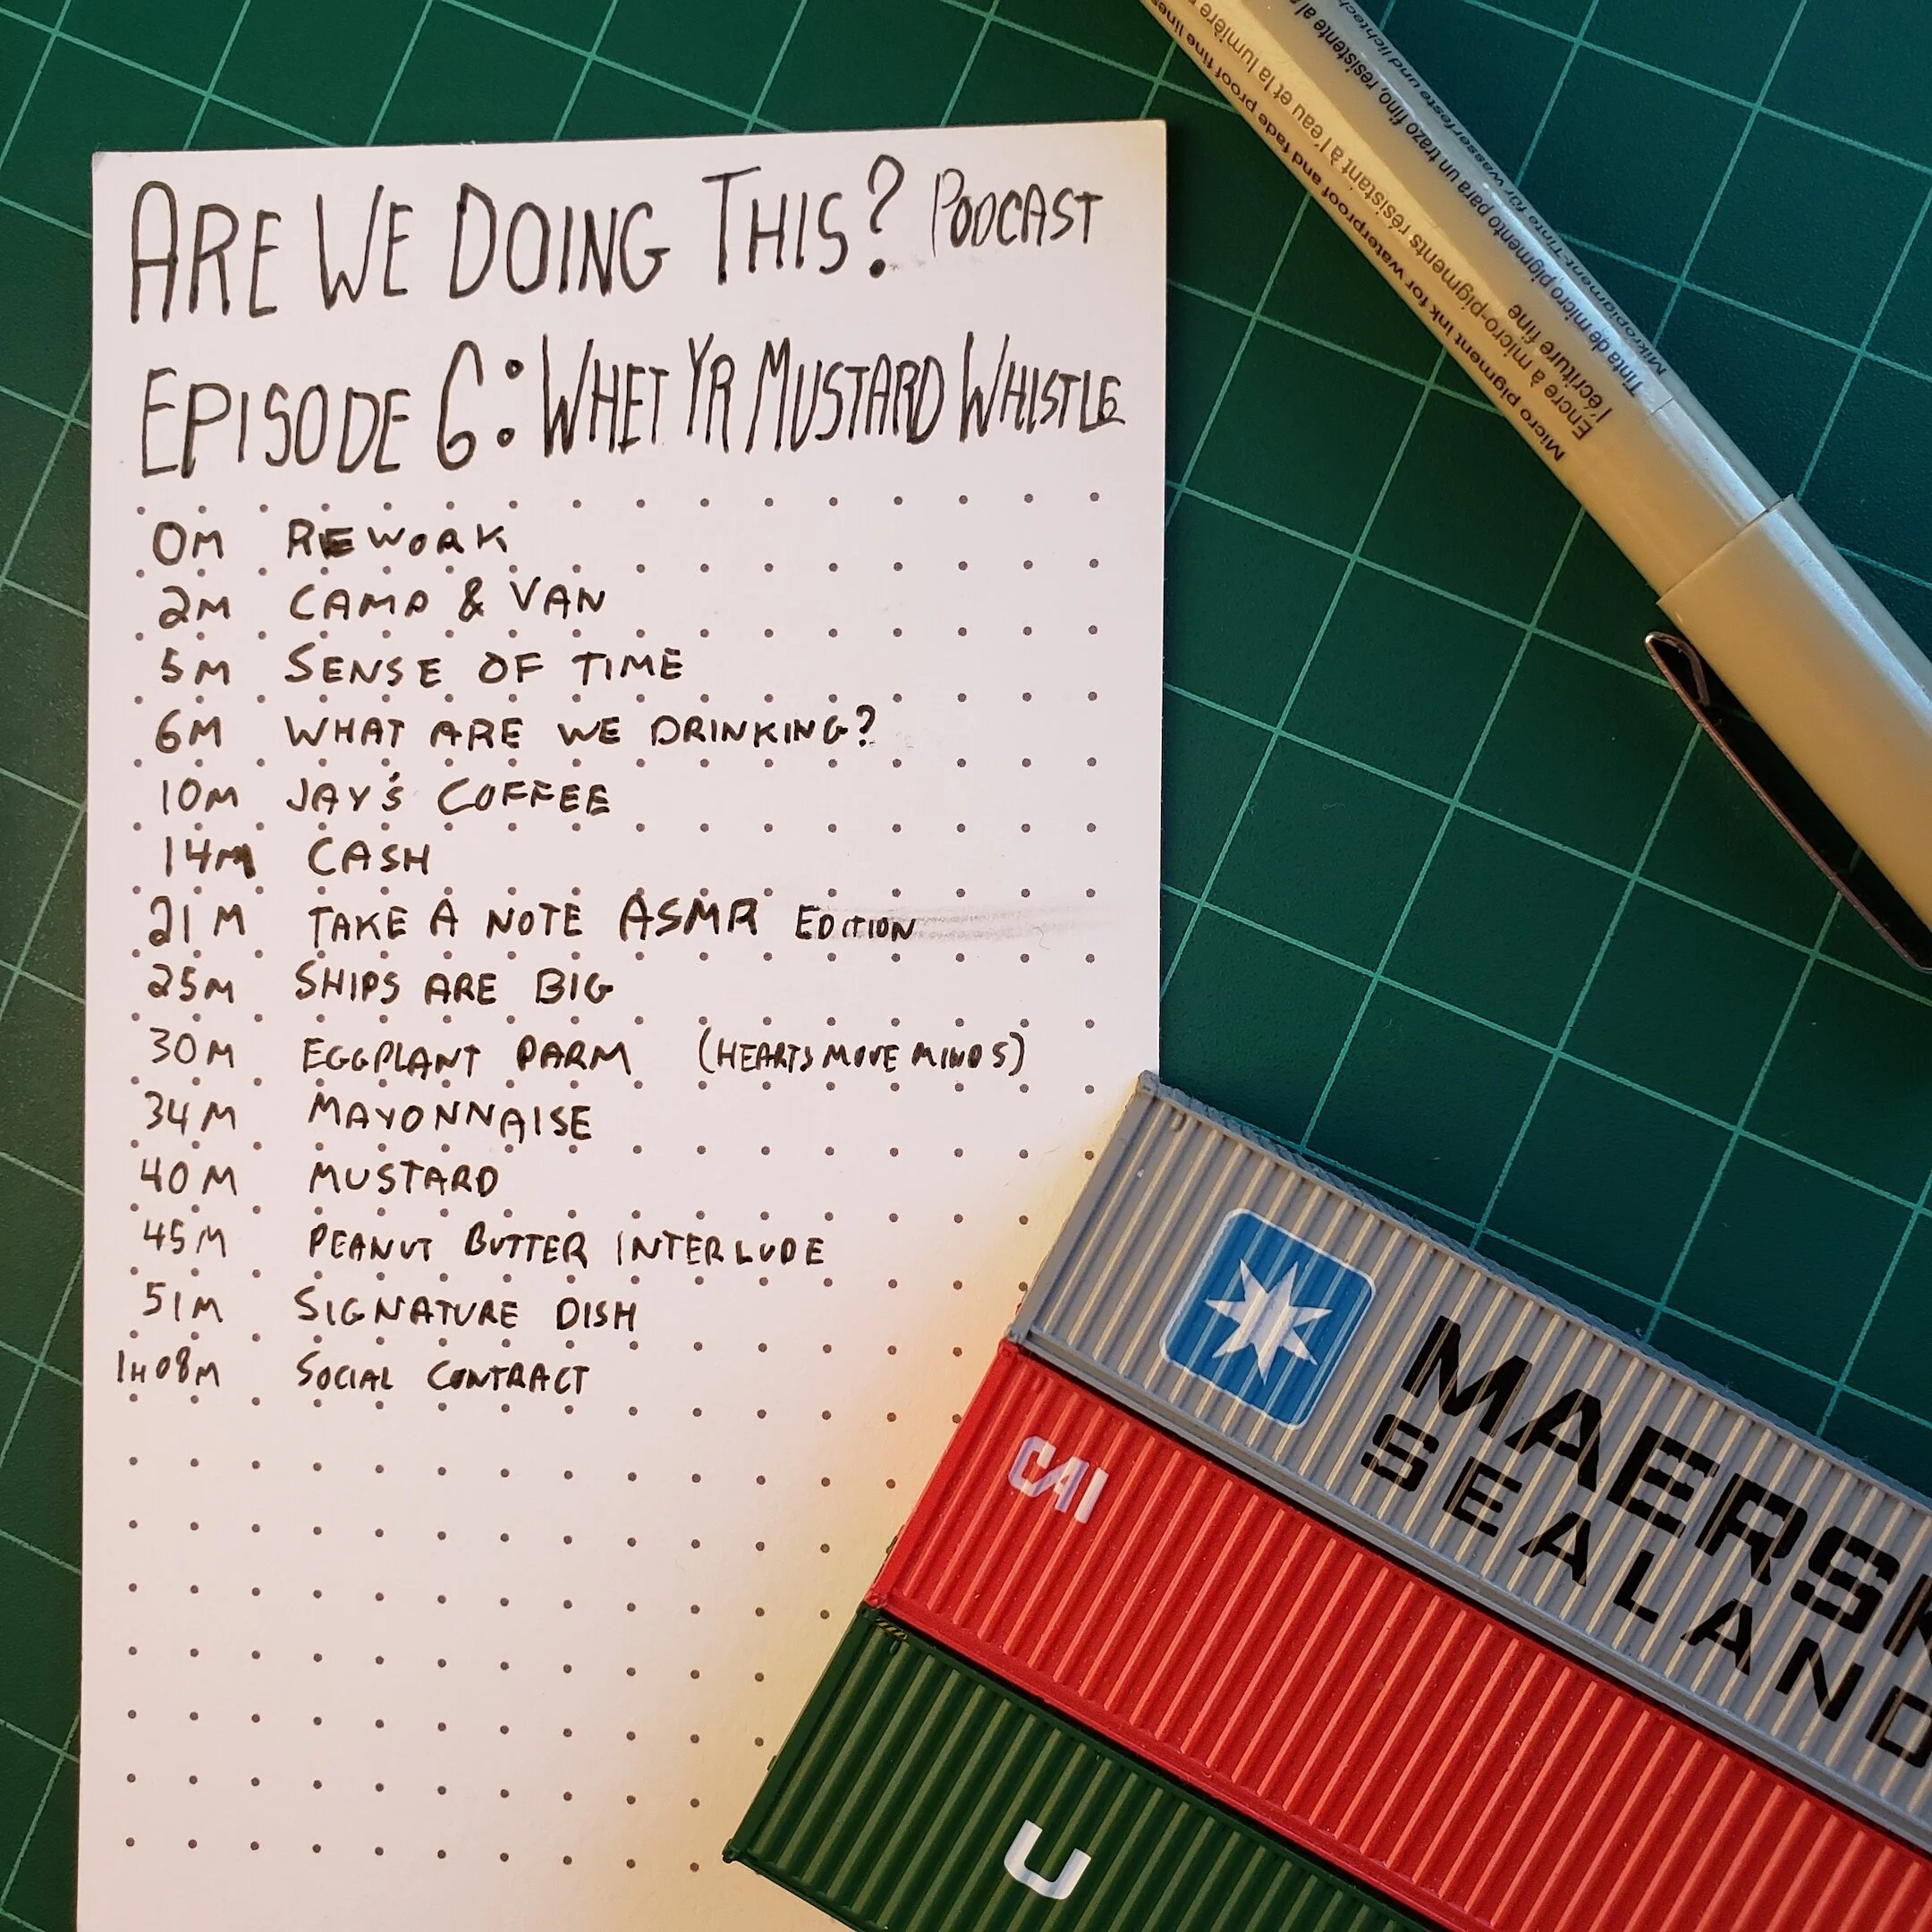 ARE WE DOING THIS? PODCAST
EPISODE 6: WHET YR MUSTARD WHISTLE
0M REWORK
2M CAMP & VAN
5M SENSE OF TIME
6M WHAT ARE WE DRINKING?
10M JAY'S COFFEE
14M CASH
21M TAKE A NOTE ASMR EDITION
25M SHIPS ARE BIG
30M EGGPLANT PARM (HEARTS MOVE MINDS)
34M MAYONNAISE
40M MUSTARD
45M PEANUT BUTTER INTERLUDE
51M SIGNATURE DISH
1H08M SOCIAL CONTRACT
Micro pigment ink for waterproof and fade proof fine lines
Encre à micro-pigments résistant à l'eau et la lumière
l'écriture fine
Tinta de micro pigmento para un trazo fino, resistente al
Mikropigment-Tinte für wasserfeste und
MAERSK
SEALAND
CAI
U